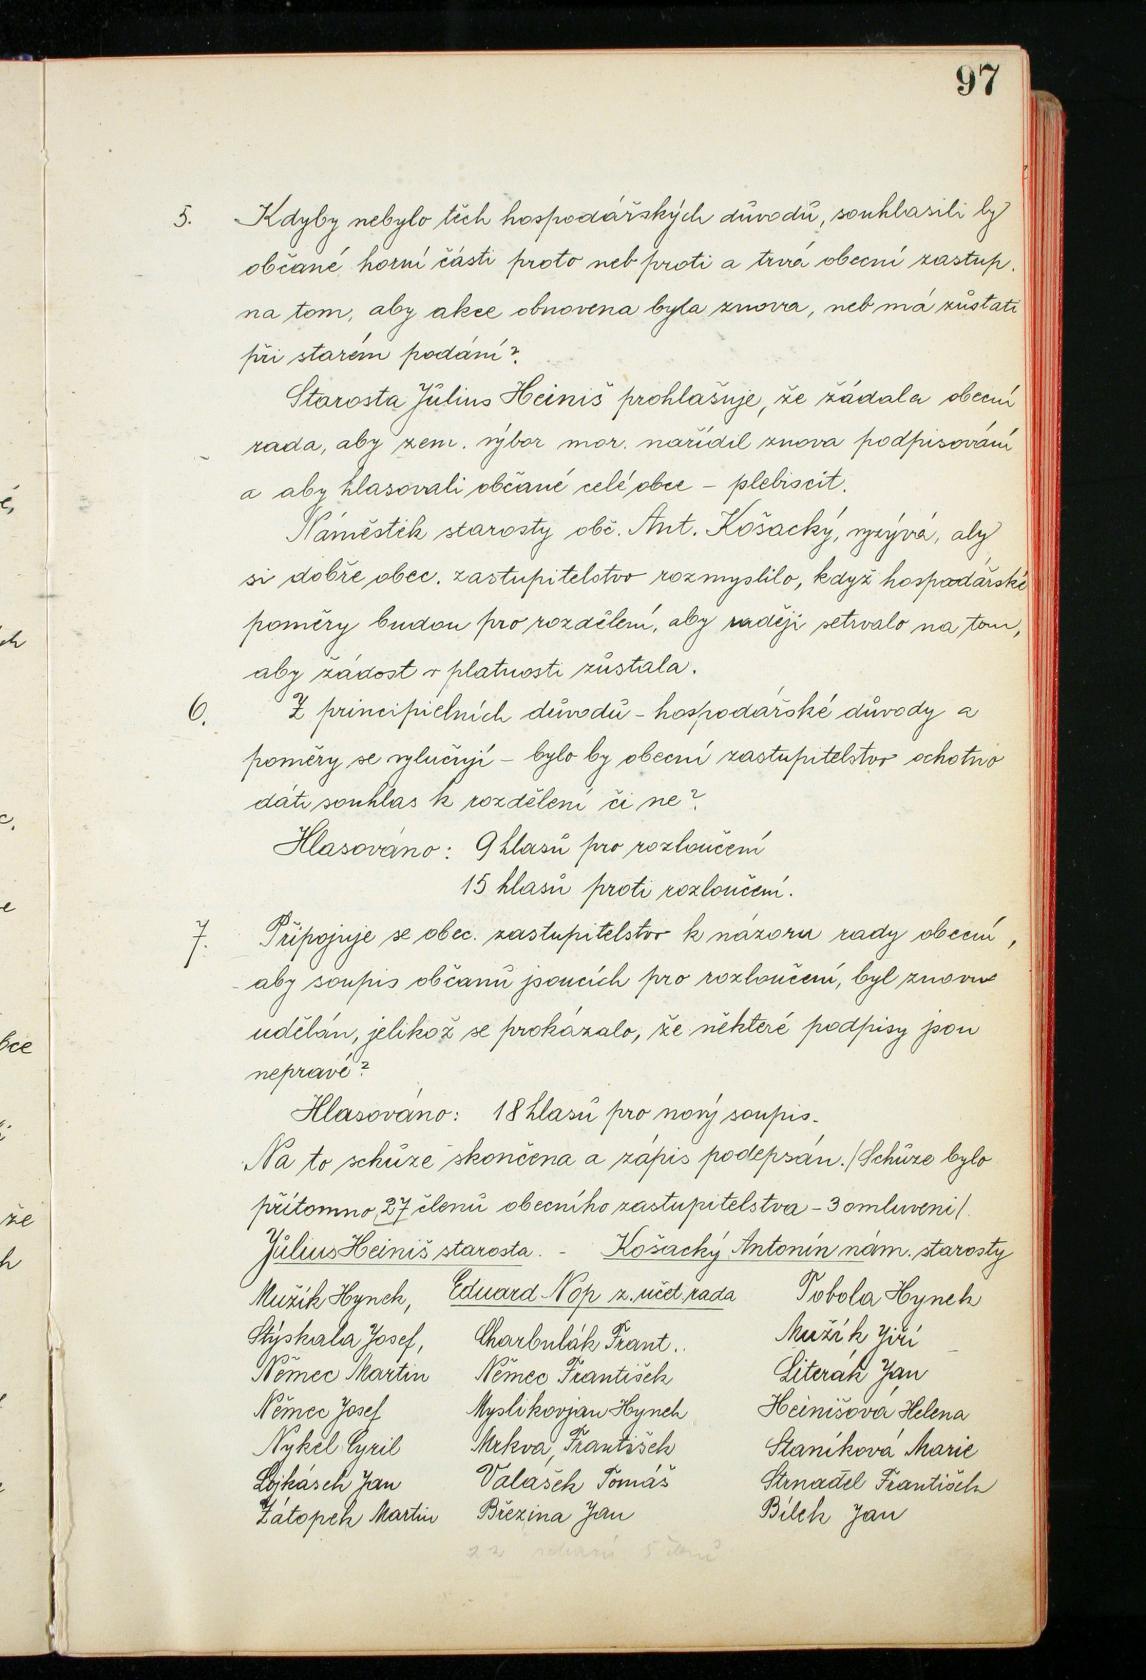 97
5. Kdyby nebylo těch hospodářských důvodů, souhlasili by
občané horní části proto neb proti a trvá obecní zastup.
na tom, aby akce obnovena byla znova, neb má zůstati
při starém podání?
Starosta Július Heiniš prohlašuje, že žádala obecní
rada, aby zem. výbor mor. nařídil znova podpisování
a aby hlasovali občané celé obce – plebiscit.
Náměstek starosty obč. Ant. Košacký, vyzývá, aby
si dobře obec. zastupitelstvo rozmyslilo, když hospodářské
poměry budou pro rozdělení, aby raději setrvalo na tom,
aby žádost v platnosti zůstala.
6. Z principielních důvodů – hospodářské důvody a
poměry se vylučují – bylo by obecní zastupitelstvo ochotno
dáti souhlas k rozdělení či ne?
Hlasováno: 9 hlasů pro rozloučení
15 hlasů proti rozloučení.
7. Připojuje se obec. zastupitelstvo k názoru rady obecní,
aby soupis občanů jsoucích pro rozloučení, byl znovu
udělán, jelikož se prokázalo, že některé podpisy jsou
nepravé?
Hlasováno: 18 hlasů pro nový soupis.
Na to schůze skončena a zápis podepsán. /Schůze bylo
přítomno 27 členů obecního zastupitelstva – 3 omluveni/.
Július Heiniš starosta. - Košacký Antonín nám. starosty
Mužík Hynek, Eduard Nop z. účet. rada Tobola Hynek
Stýskala Josef, Charbulák Frant.. Mužík Jiří
Němec Martin Němec František Literák Jan
Němec Josef Myslikovjan Hynek Heinišová Helena
Nykel Cyril Mrkva, František Staníková Marie
Lojkásek Jan Valašek Tomáš Strnadel František
Zátopek Martin Březina Jan Bílek Jan
22 5 členů